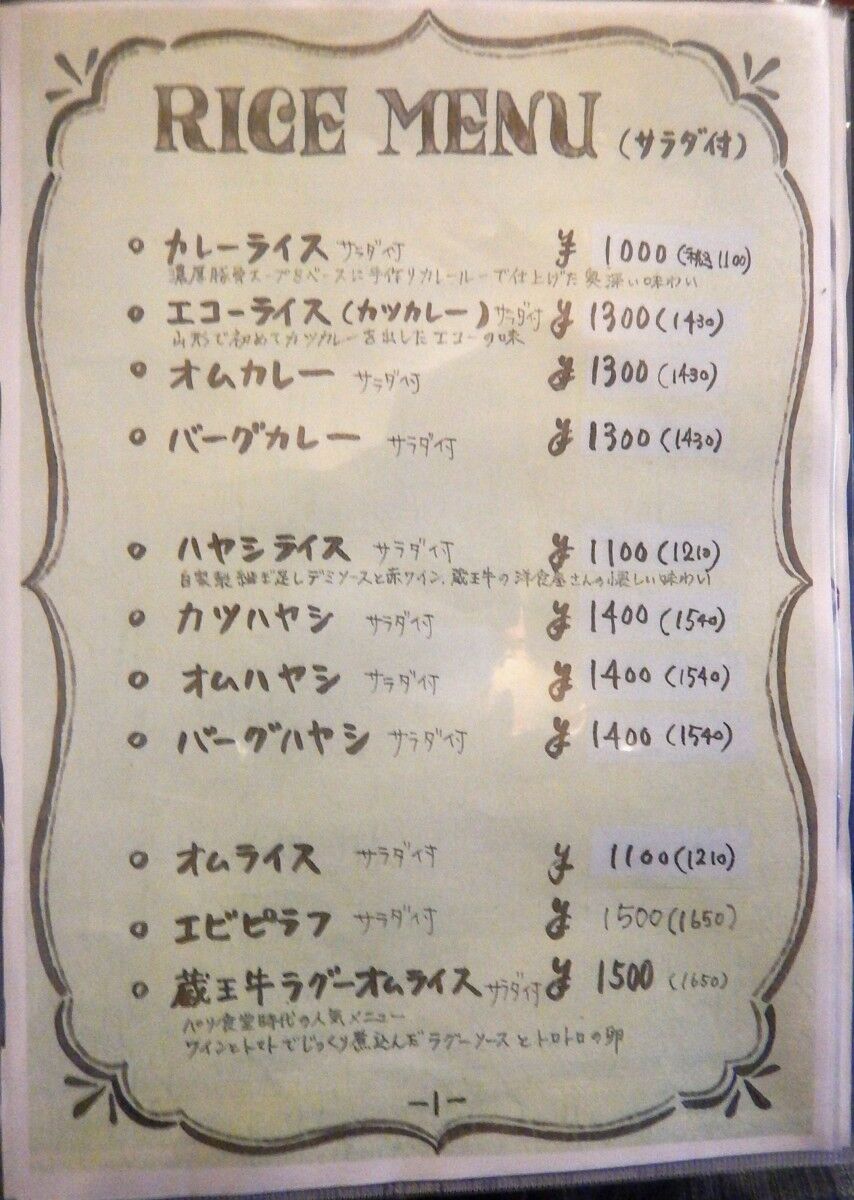 RICE MENU (サラダ付)
○ カレーライス サラダ付 ¥ 1000 (税込1100)
濃厚豚骨スープをベースに手作りカレールーで仕上げた奥深い味わい
○ エコーライス (カツカレー) サラダ付 ¥ 1300 (1430)
山形で初めてカツカレーを出したエコーの味
○ オムカレー サラダ付 ¥ 1300 (1430)
○ バーグカレー サラダ付 ¥ 1300 (1430)
○ ハヤシライス サラダ付 ¥ 1100 (1210)
自家製継ぎ足しデミソースと赤ワイン、蔵王牛の洋食屋さんの懐しい味わい
○ カツハヤシ サラダ付 ¥ 1400 (1540)
○ オムハヤシ サラダ付 ¥ 1400 (1540)
○ バーグハヤシ サラダ付 ¥ 1400 (1540)
○ オムライス サラダ付 ¥ 1100 (1210)
○ エビピラフ サラダ付 ¥ 1500 (1650)
○ 蔵王牛ラグーオムライス サラダ付 ¥ 1500 (1650)
食堂時代の人気メニュー
ワインとトマトでじっくり煮込んだラグーソースとトロトロの卵
-1-